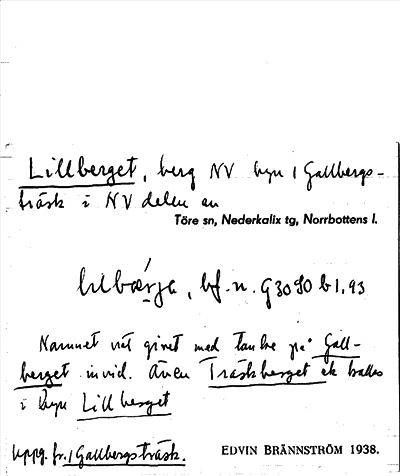 Lillberget, berg NV byn 1 Gallbergs-
träsk i NV delen av
Töre sn, Nederkalix tg, Norrbottens l.
bf. n. G3090 b 1, 93
Namnet givet med tanke på Gall-
berget invid. Även Träskberget kallas
i byn Lillberget
Uppg. fr. 1 Gallbergsträsk.
EDVIN BRÄNNSTRÖM 1938.